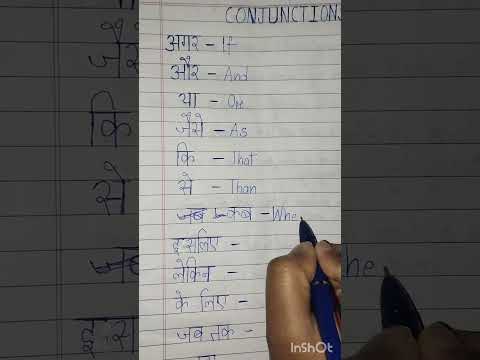 CONJUNCTION
अगर - If
और - And
या - Or
जैसे - As
कि - That
से - Than
जब कब - Whe
इसलिए -
लेकिन -
के लिए -
जब तक -
InShOt